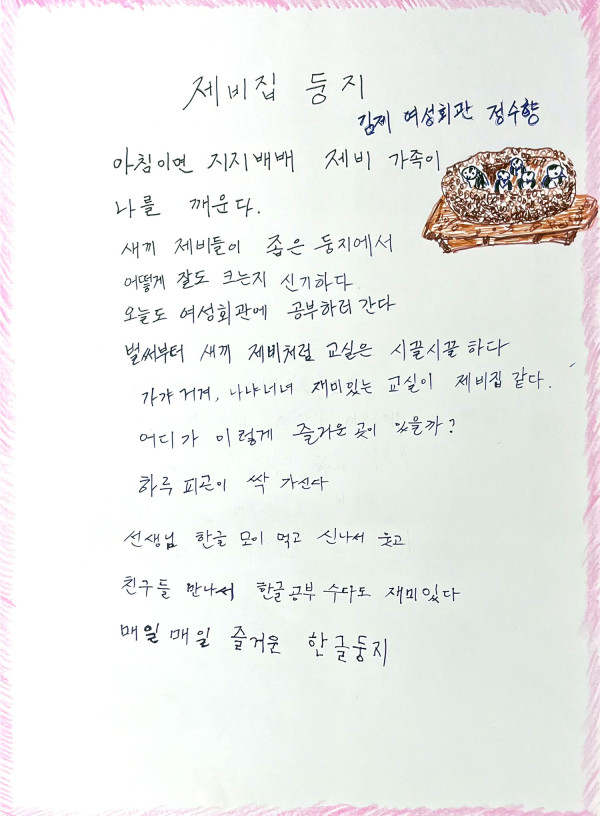 제비집 둥지
김제 여성회관 정수향
아침이면 지지배배 제비 가족이
나를 깨운다.
새끼 제비들이 좁은 둥지에서
어떻게 잘도 크는지 신기하다
오늘도 여성회관에 공부하러 간다
벌써부터 새끼 제비처럼 교실은 시끌시끌 하다
가갸거겨, 나냐너녀 재미있는 교실이 제비집 같다.
어디가 이렇게 즐거운 곳이 있을까?
하루 피곤이 싹 가신다
선생님 한글 모이 먹고 신나서 웃고
친구들 만나서 한글공부 수다도 재미있다
매일매일 즐거운 한글둥지